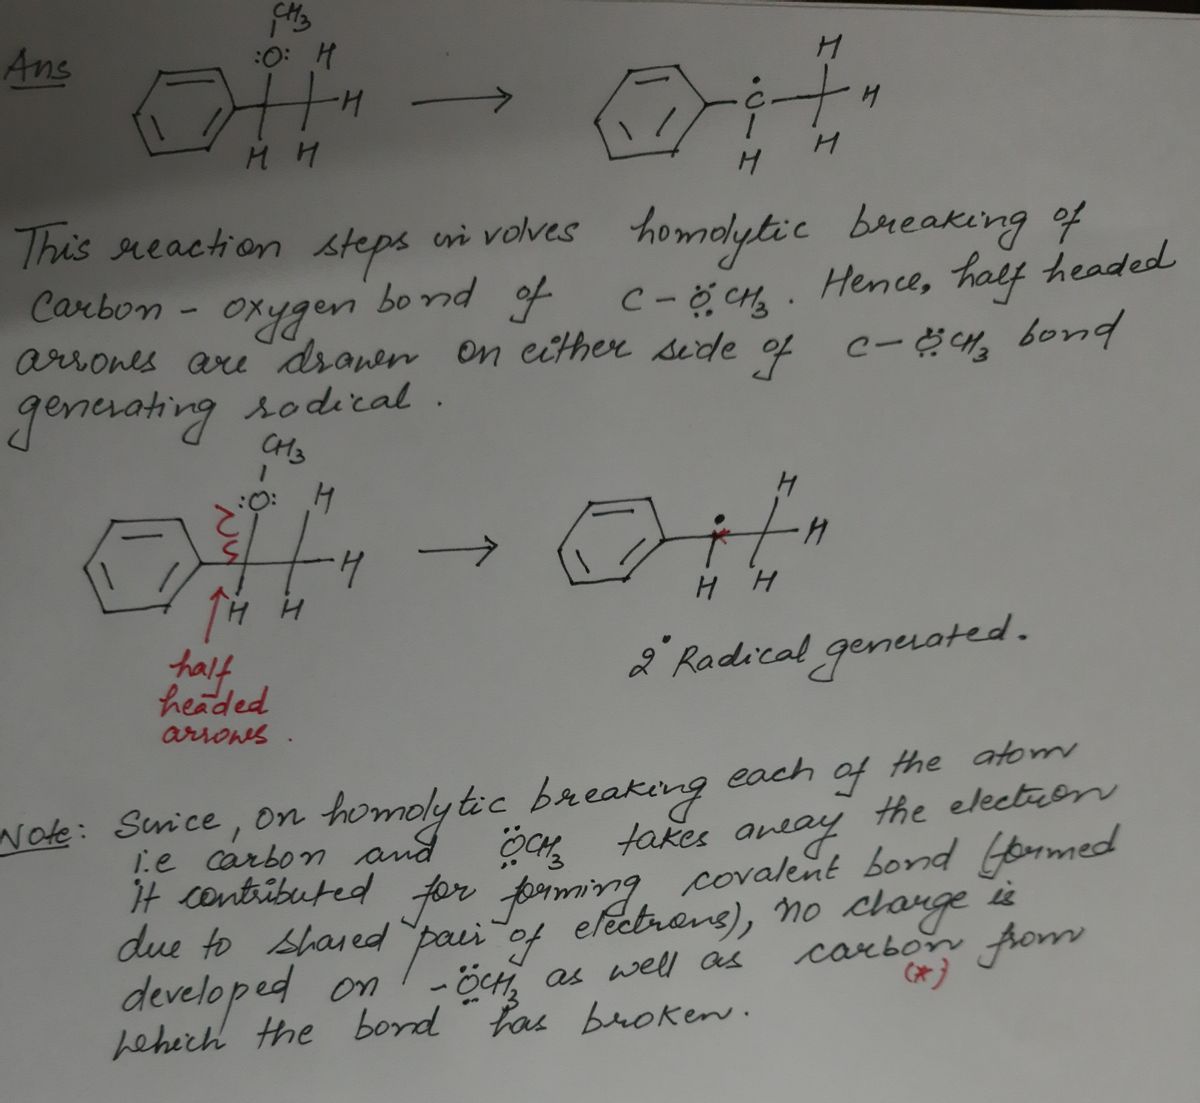 Ans
CH3
:O: H
H
H H
H
Ċ
H
H
H
This reaction steps involves homolytic breaking of
Carbon - oxygen bond of C-ÖCH3. Hence, half headed
arrows are drawn on either side of C-ÖCH3 bond
generating radical.
CH3
:O: H
H
H H
H
H
H H
half
headed
arrows.
2° Radical generated.
Note: Since, on homolytic breaking each of the atom
i.e carbon and ÖCH3 takes away the electron
it contributed for forming covalent bond (formed
due to shared pair of electrons), no charge is
developed on -ÖCH3 as well as carbon from
(*)
which the bond has broken.